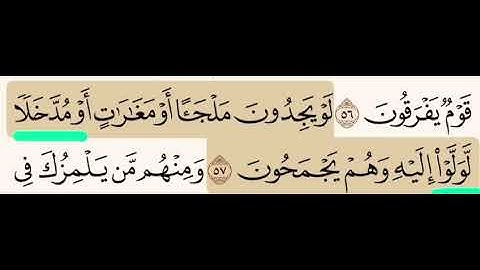 قَوْمٌ يَفْرَقُونَ ٥٦ لَوْ يَجِدُونَ مَلْجَـًٔا أَوْ مَغَـٰرَٰتٍ أَوْ مُدَّخَلًا
لَّوَلَّوْا۟ إِلَيْهِ وَهُمْ يَجْمَحُونَ ٥٧ وَمِنْهُم مَّن يَلْمِزُكَ فِى